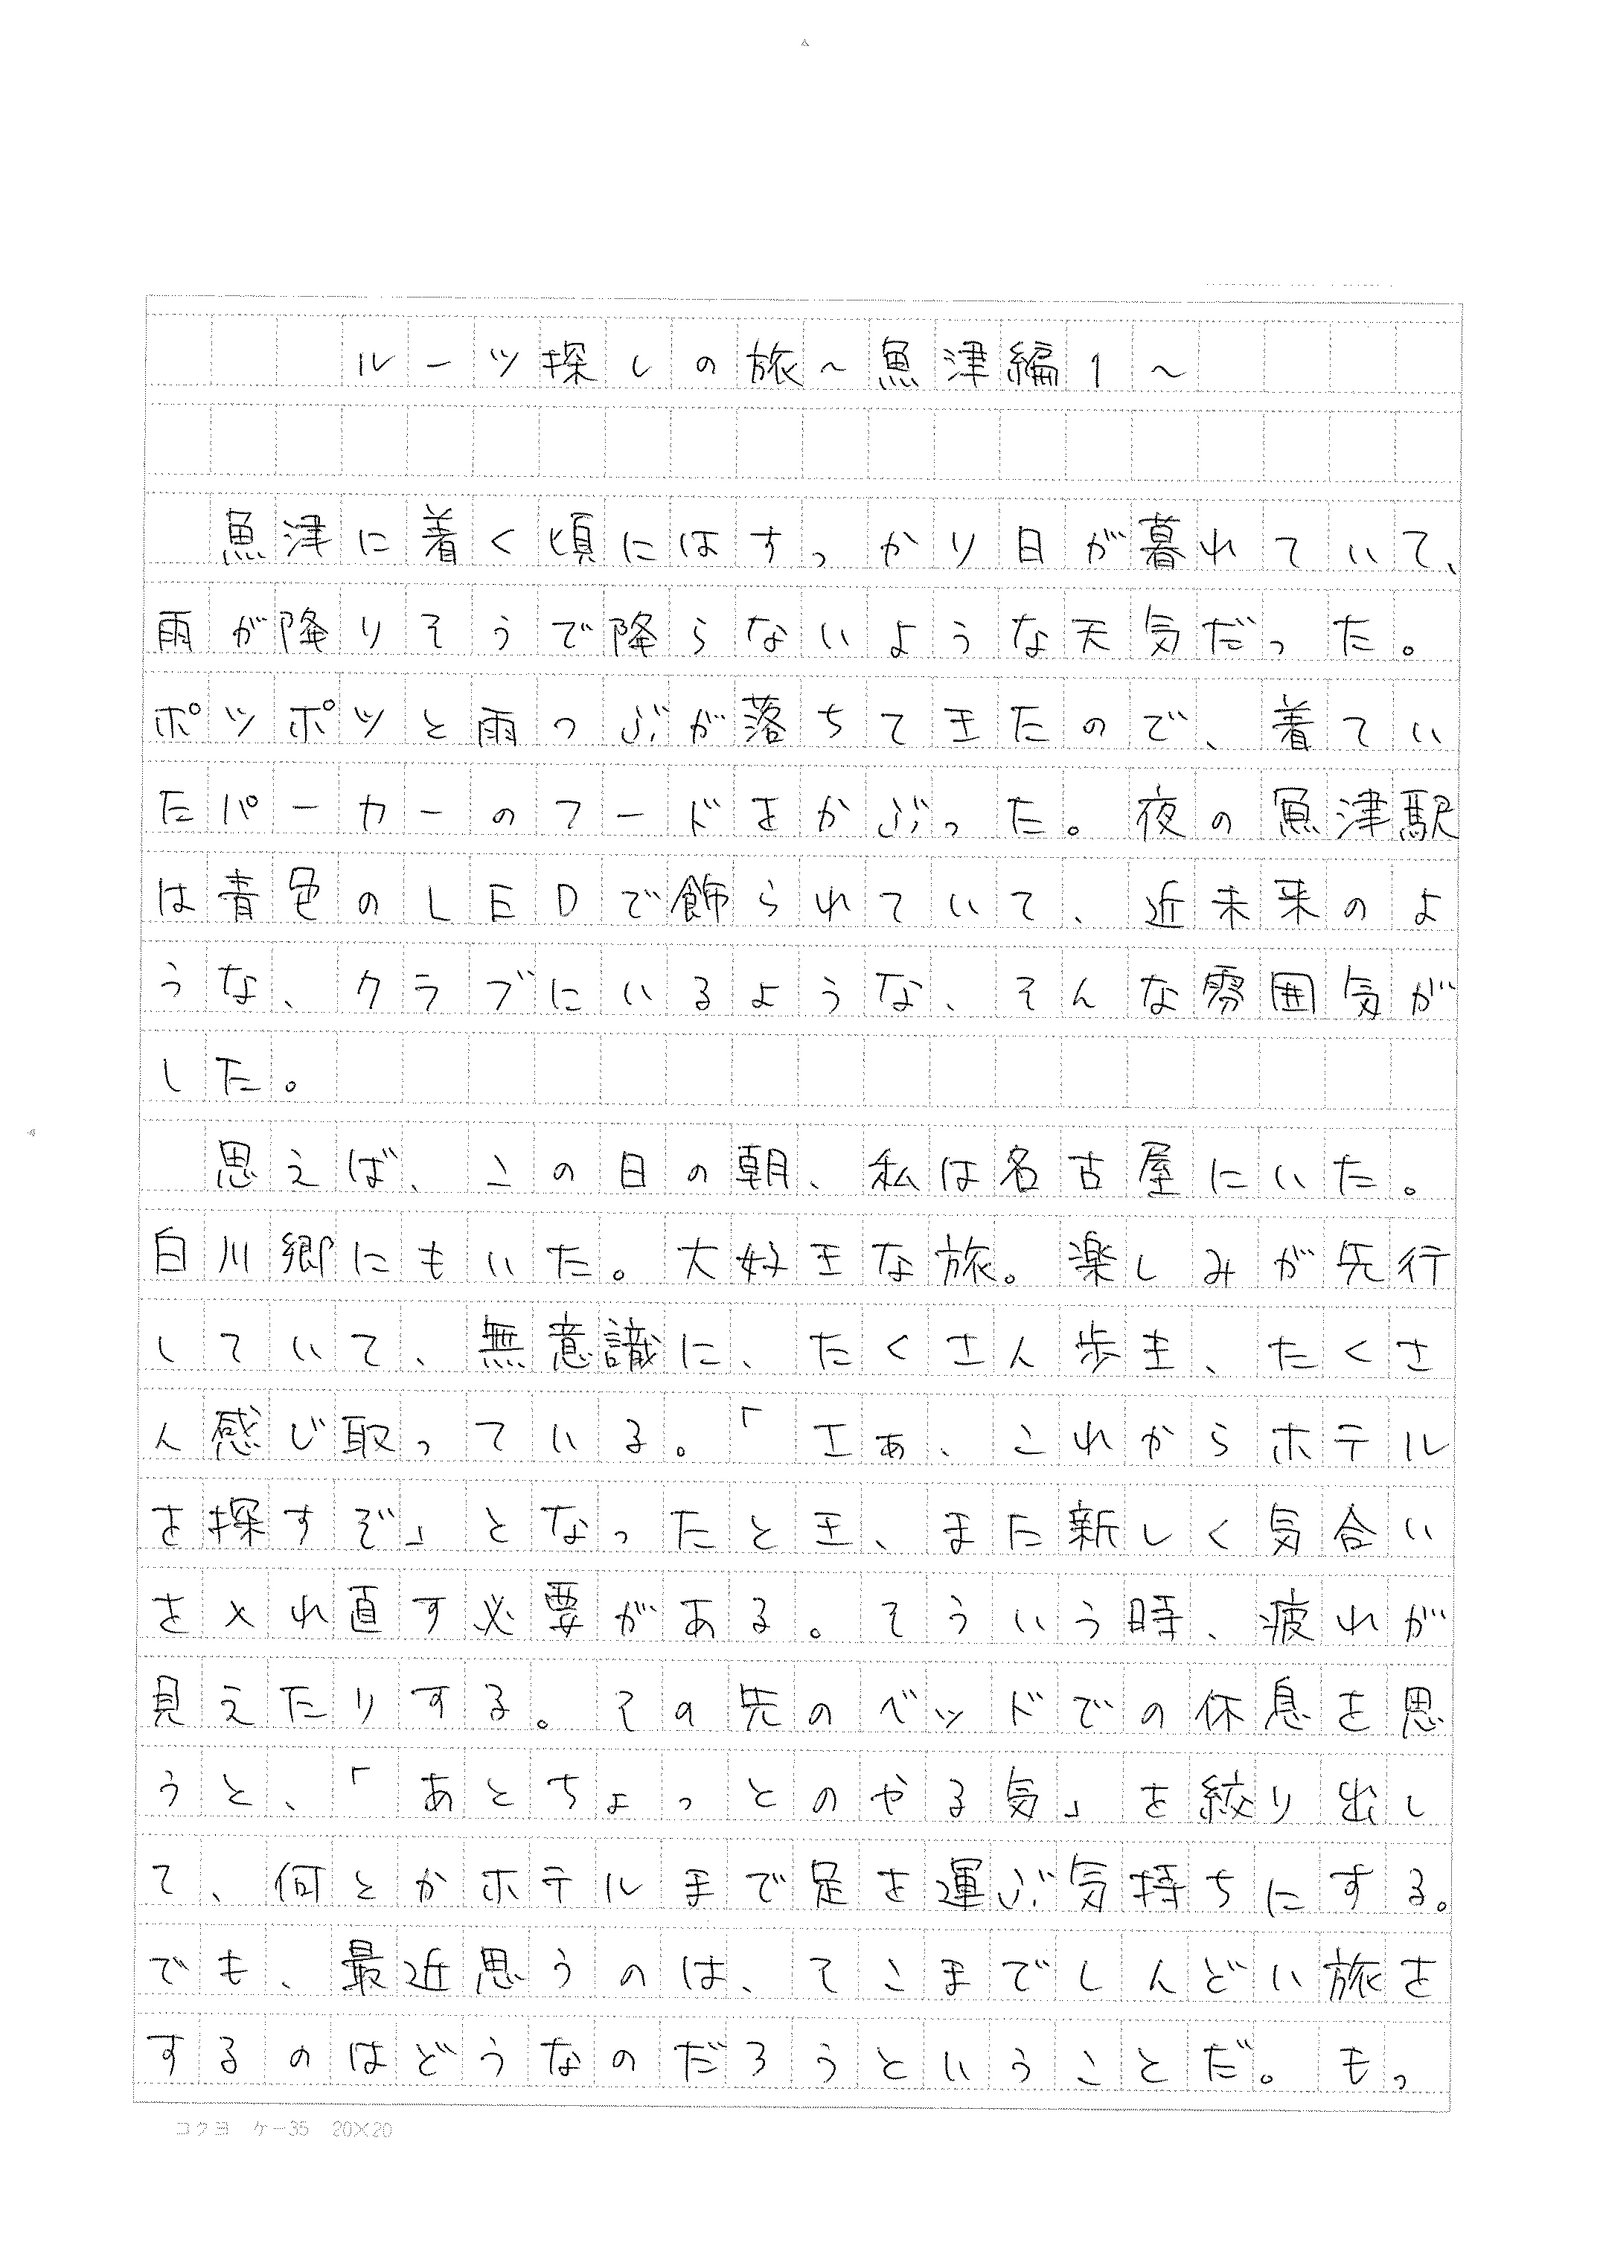 ルーツ探しの旅～魚津編1～
魚津に着く頃にはすっかり日が暮れていて、
雨が降りそうで降らないような天気だった。
ポツポツと雨つぶが落ちてきたので、着てい
たパーカーのフードをかぶった。夜の魚津駅
は青色のLEDで飾られていて、近未来のよ
うな、クラブにいるような、そんな雰囲気が
した。
思えば、この日の朝、私は名古屋にいた。
白川郷にもいた。大好きな旅。楽しみが先行
していて、無意識に、たくさん歩き、たくさ
ん感じ取っている。「さぁ、これからホテル
を探すぞ」となったとき、また新しく気合い
を入れ直す必要がある。そういう時、疲れが
見えたりする。その先のベッドでの休息を思
うと、「あとちょっとのやる気」を絞り出し
て、何とかホテルまで足を運ぶ気持ちにする。
でも、最近思うのは、そこまでしんどい旅を
するのはどうなのだろうということだ。もっ
コクヨ ケー35 20×20